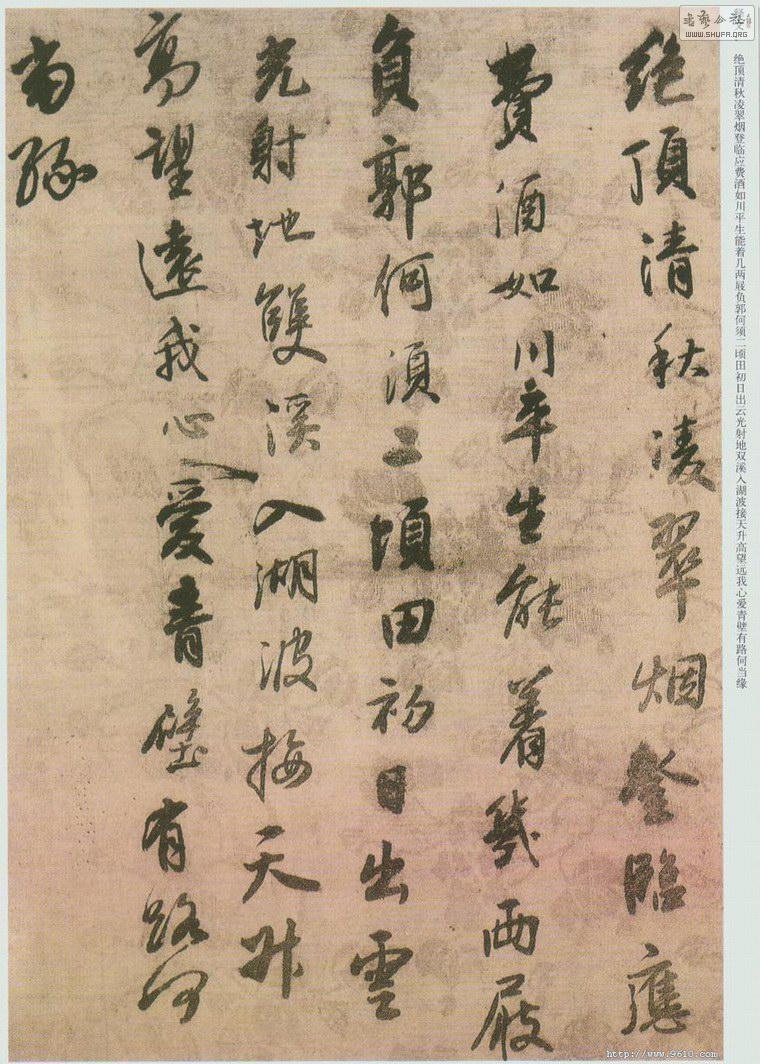 绝顶清秋凌翠烟登临应费酒如川平生能着几两屐负郭何须二顷田初日出云光射地双溪入湖波接天升高望远我心爱青壁有路何当缘
WWW.SHUFA.ORG
絶頂清秋凌翠烟登臨應
費酒如川平生能着幾兩屐
負郭何須二頃田初日出雲
光射地雙溪入湖波接天升
高望遠我心愛青壁有路何
當緣
http://www.9610.com